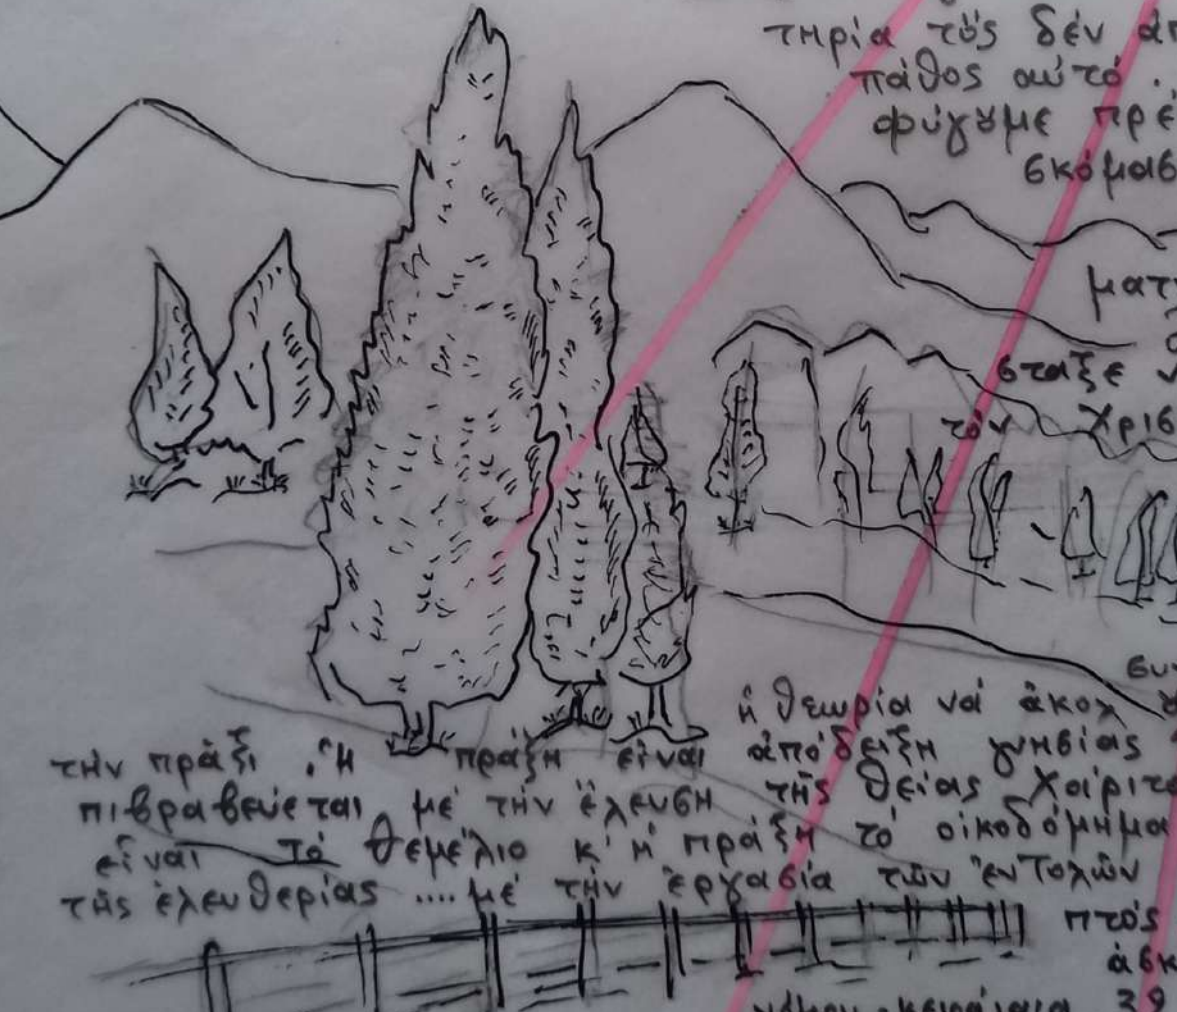 τηρία τȣ̃ς δέν
πάθος αὐτό .
φύγȣμε πρέ
σκόμασ
ματ
σταξε ν
τόν Χρισ
συ
ἡ θεωρία νά ἀκολ
τήν πρᾶξι . Ἡ πρᾶξη εἶναι ἀπόδειξη γνησίας
πιβραβεύεται μέ τήν ἔλευση τῆς θείας Χάριτο
εἶναι τό θεμέλιο κ' ἡ πράξη τό οἰκοδόμημα
τῆς ἐλευθερίας .... μέ τήν ἐργασία τῶν ἐντολῶν
πτός
ἀσκ
κεφάλαια 39